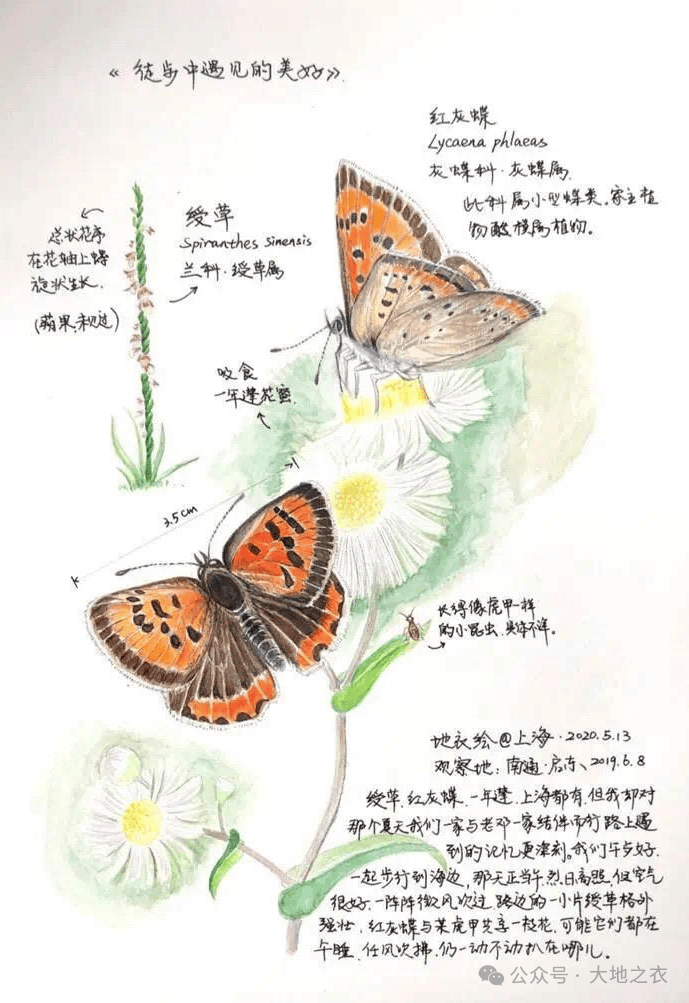 《徒步中遇见的美好》
红灰蝶
Lycaena phlaeas
灰蝶科·灰蝶属
此科属小型蝶类。寄主植
物酸模属植物。
绶草
Spiranthes sinensis
兰科·绶草属
总状花序
在花轴上螺
旋状生长.
(蒴果,未见过)
吸食
一年蓬花蜜.
3.5cm
长得像虎甲一样
的小昆虫.具体不详。
地衣绘@上海·2020.5.13
观察地:南通·启东、2019.6.8
绶草、红灰蝶、一年蓬、上海都有.但我却对
那个夏天我们一家与老邓一家结伴而行路上遇
到的记忆更深刻。我们午后好.
一起步行到海边,那天正当午.烈日高照.但空气
很好.一阵阵微风吹过.路边的一小片绶草格外
强壮、红灰蝶与某虎甲共享一枝花,可能它们都在
午睡、任风吹拂、仍一动不动扒在哪儿。
公众号·大地之衣